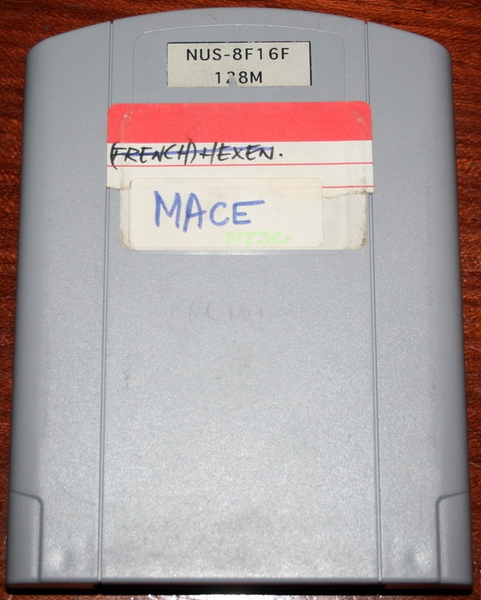 NUS-8F16F
128M
(FRENCH) HEXEN.
MACE
NTSC